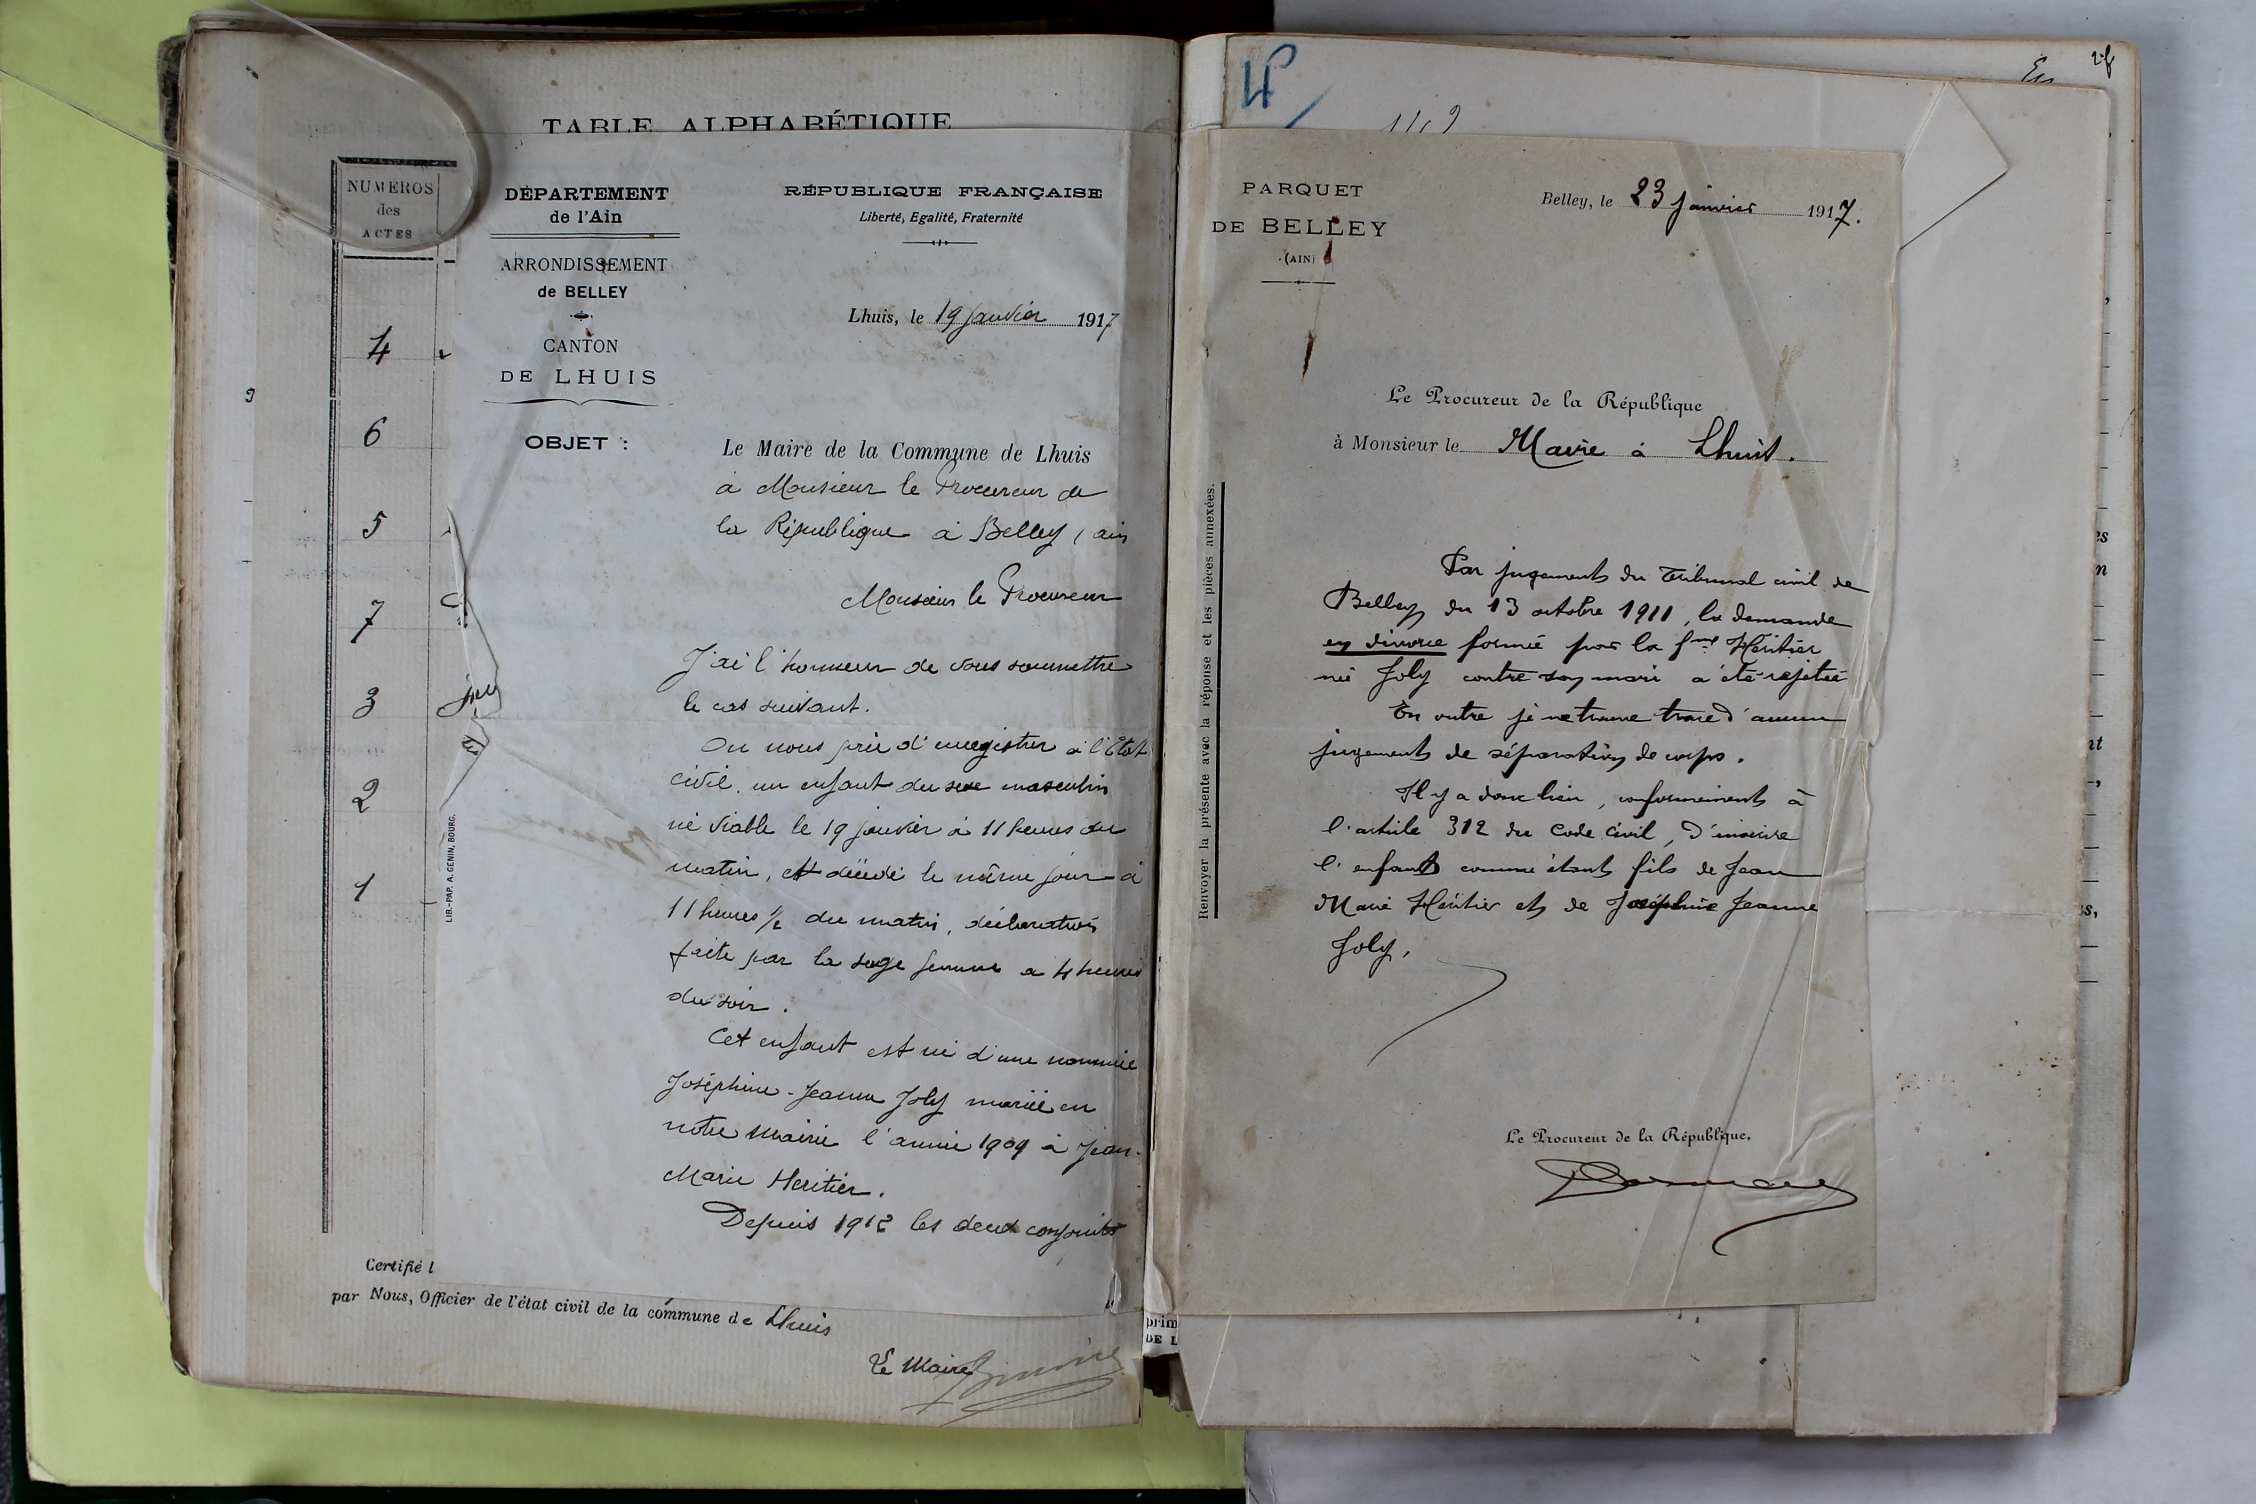 TABLE ALPHABÉTIQUE
NUMEROS
des
ACTES
4
6
5
7
3
2
1
DÉPARTEMENT
de l'Ain
ARRONDISSEMENT
de BELLEY
CANTON
DE LHUIS
OBJET :
LIB.-PAP. A. GENIN, BOURG.
RÉPUBLIQUE FRANÇAISE
Liberté, Egalité, Fraternité
Lhuis, le 19 Janvier 1917
Le Maire de la Commune de Lhuis
à Monsieur le Procureur de
la République à Belley (ain
Monsieur le Procureur
J'ai l'honneur de vous soumettre
le cas suivant.
On nous prie d'enregistrer à l'Etat
civil, un enfant du sexe masculin
né viable le 19 janvier à 11 heures du
matin, et décédé le même jour à
11 heures ½ du matin, déclaration
faite par la sage femme a 4 heures
du soir.
Cet enfant est né d'une nommée
Joséphine-Jeanne Joly mariée en
notre mairie l'année 1909 à Jean-
Marie Heritier.
Depuis 1912 les deux conjoints
Certifié l
par Nous, Officier de l'état civil de la commune de Lhuis
Le Maire
PARQUET
DE BELLEY
(AIN)
Belley, le 23 janvier 1917.
Le Procureur de la République
à Monsieur le Maire à Lhuis.
Renvoyer la présente avec la réponse et les pièces annexées.
Par jugement du Tribunal civil de
Belley du 13 octobre 1911, la demande
en divorce formée par la fme Héritier
née Joly contre son mari a été rejetée
En outre je ne trouve trace d'aucun
jugement de séparation de corps.
Il y a donc lieu, conformément à
l'article 312 du Code civil, d'inscrire
l'enfant comme étant fils de Jean
Marie Héritier et de Joséphine Jeanne
Joly.
Le Procureur de la République,
prim
DE L